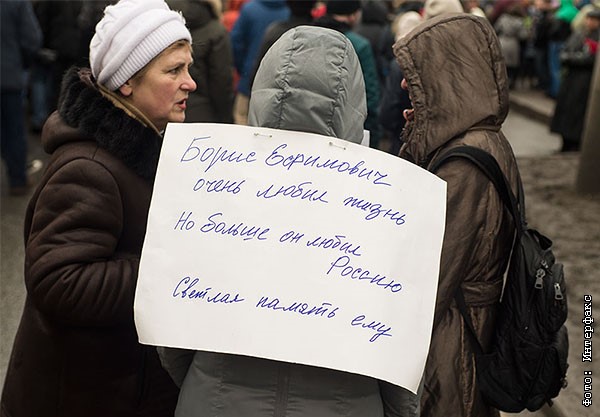 Борис Ефимович
очень любил жизнь
Но больше он любил
Россию
Светлая память ему
Фото: Интерфакс